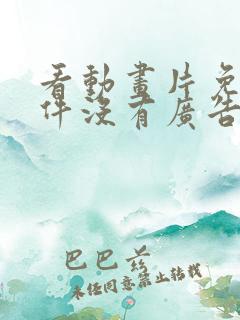 看動畫片免
件沒有廣告
巴巴爺
未经同意禁止转载